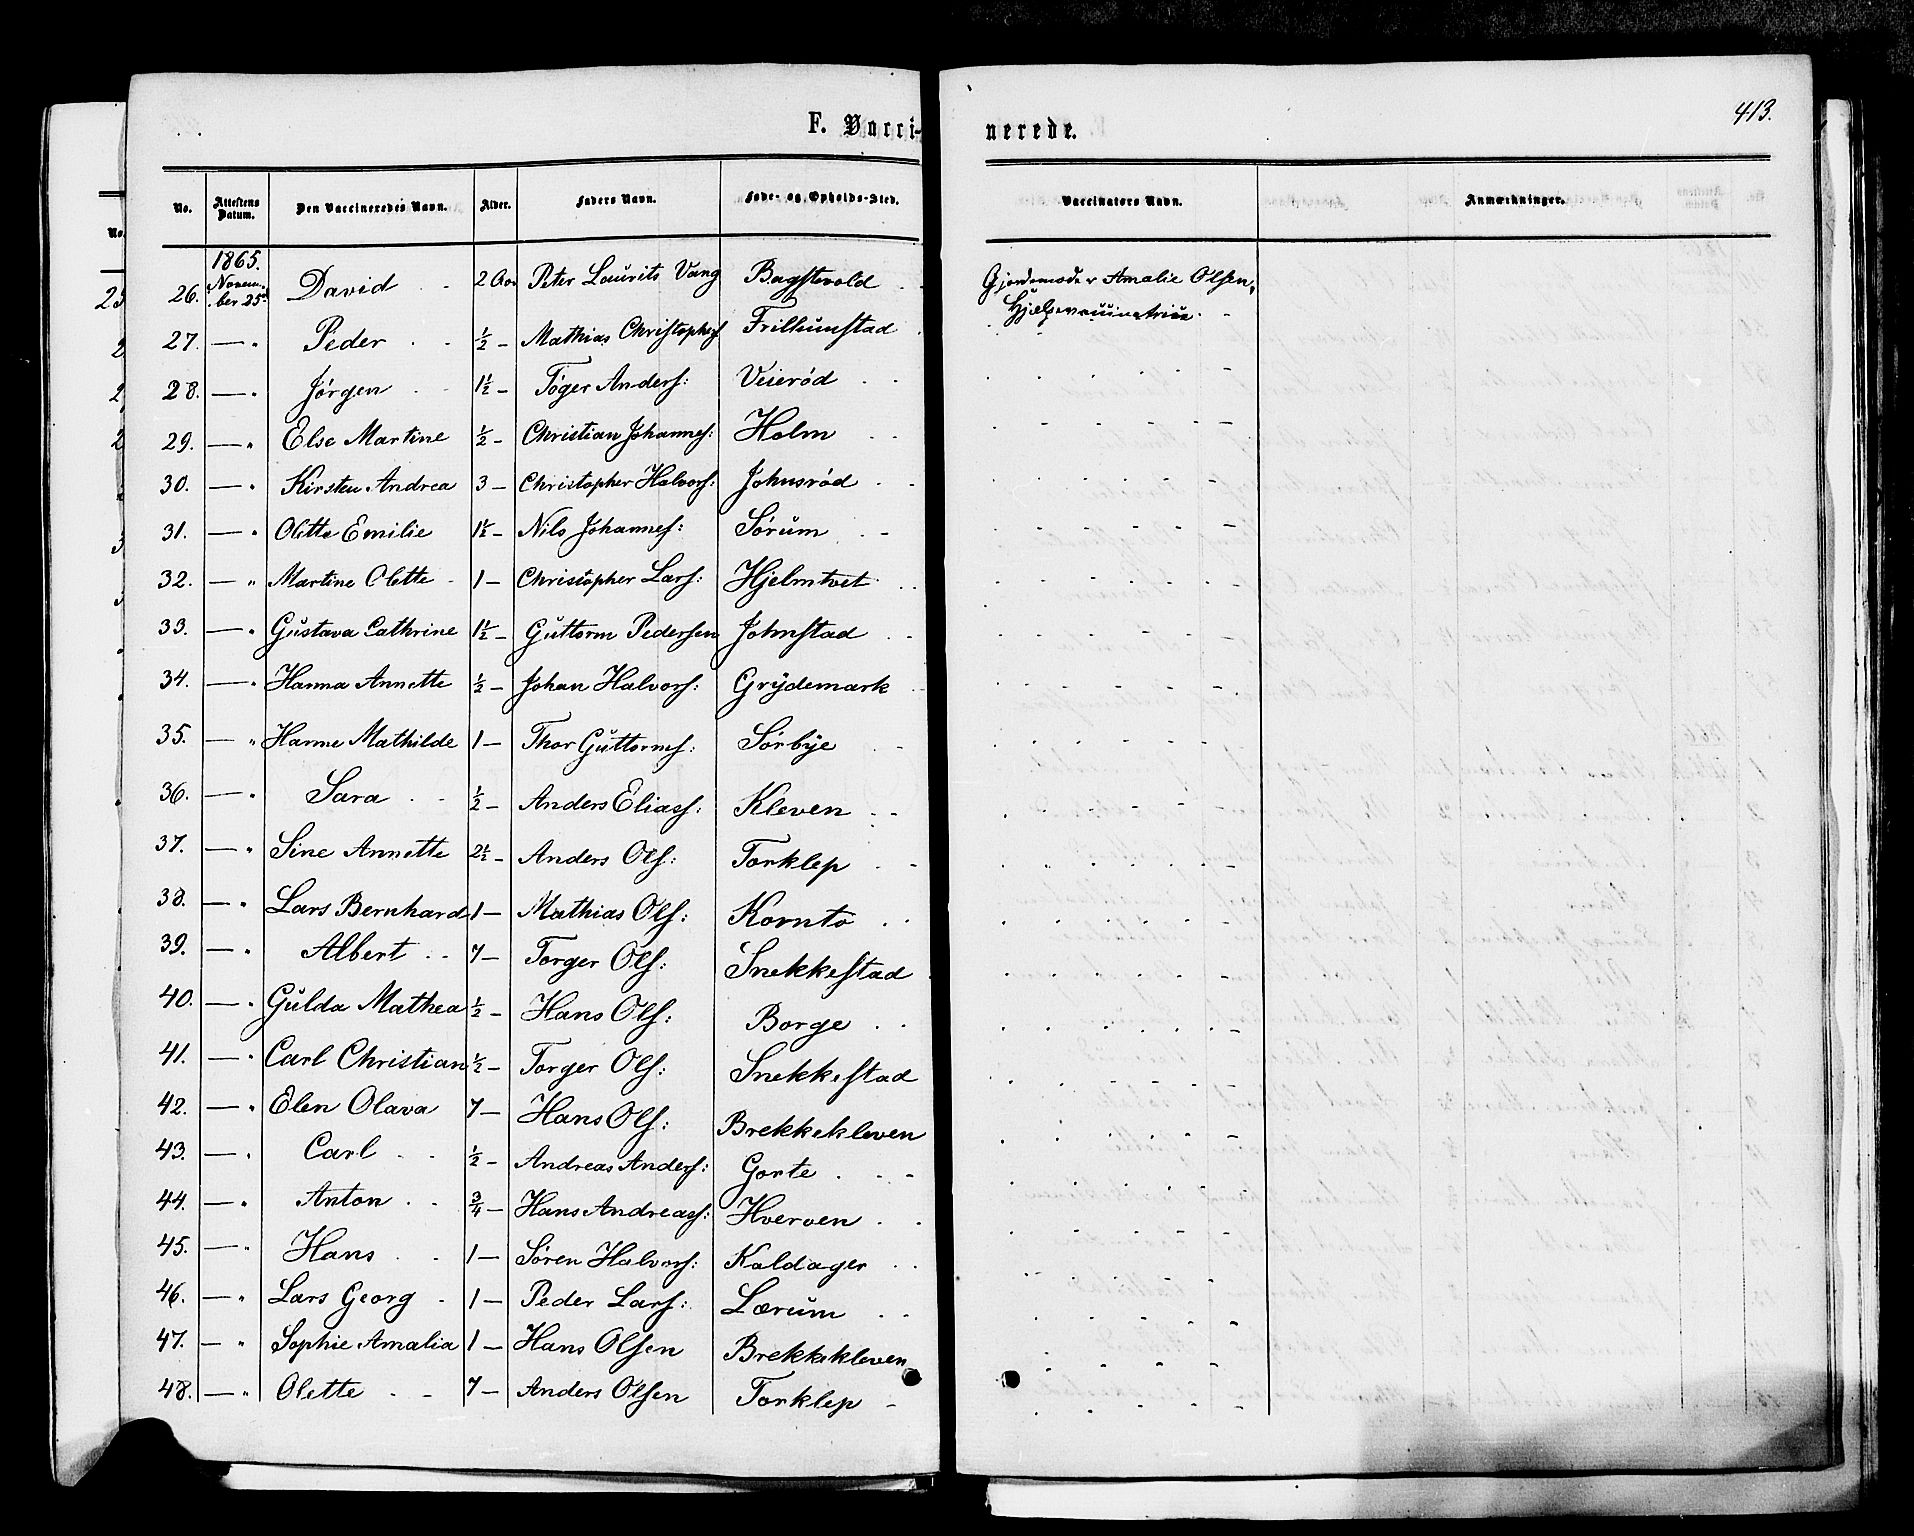 413.
F. Vacci-nerede.
No. Attestens Datum. Den Vaccineredes Navn. Alder. Faders Navn. Føde- og Opholds-Sted. Vaccinators Navn. Anmærkninger.
1865.
26. Novem-ber 25de David 2 Aar Peter Laurits Vang Bagstevold Gjordemoder Amalie Olsen, Hjælpevaccinatrice
27. — " Peder ½ — Mathias Christophers: Frillumstad
28. — " Jørgen 1½ — Tøger Anders: Veierød
29. — " Else Martine ½ — Christian Johannes: Holm
30. — " Kirsten Andrea 3 — Christopher Halvors: Johnsrød
31. — " Olette Emilie 1½ — Nils Johannes: Sørum
32. — " Martine Olette 1 — Christopher Lars: Hjelmtvet
33. — " Gustava Cathrine 1½ — Guttorm Pedersen Johnstad
34. — " Hanna Annette ½ — Johan Halvors: Grydemark
35. — " Hanne Mathilde 1 — Thor Guttorms: Sørbye
36. — " Sara ½ — Anders Elias: Kleven
37. — " Sine Annette 2½ — Anders Ols: Torklep
38. — " Lars Bernhard 1 — Mathias Ols: Kornto
39. — " Albert 7 — Torger Ols: Snekkestad
40. — " Gulda Mathea ½ — Hans Ols: Borge
41. — " Carl Christian ½ — Torger Ols: Snekkestad
42. — " Elen Olava 7 — Hans Ols: Brekkekleven
43. — " Carl ½ — Andreas Anders: Gorte
44. — " Anton ¾ — Hans Andreas: Hverven
45. — " Hans 1 — Søren Halvors: Kaldager
46. — " Lars Georg 1 — Peder Lars: Lærum
47. — " Sophie Amalia 1 — Hans Olsen Brekkekleven
48. — " Olette 7 — Anders Olsen Torklep